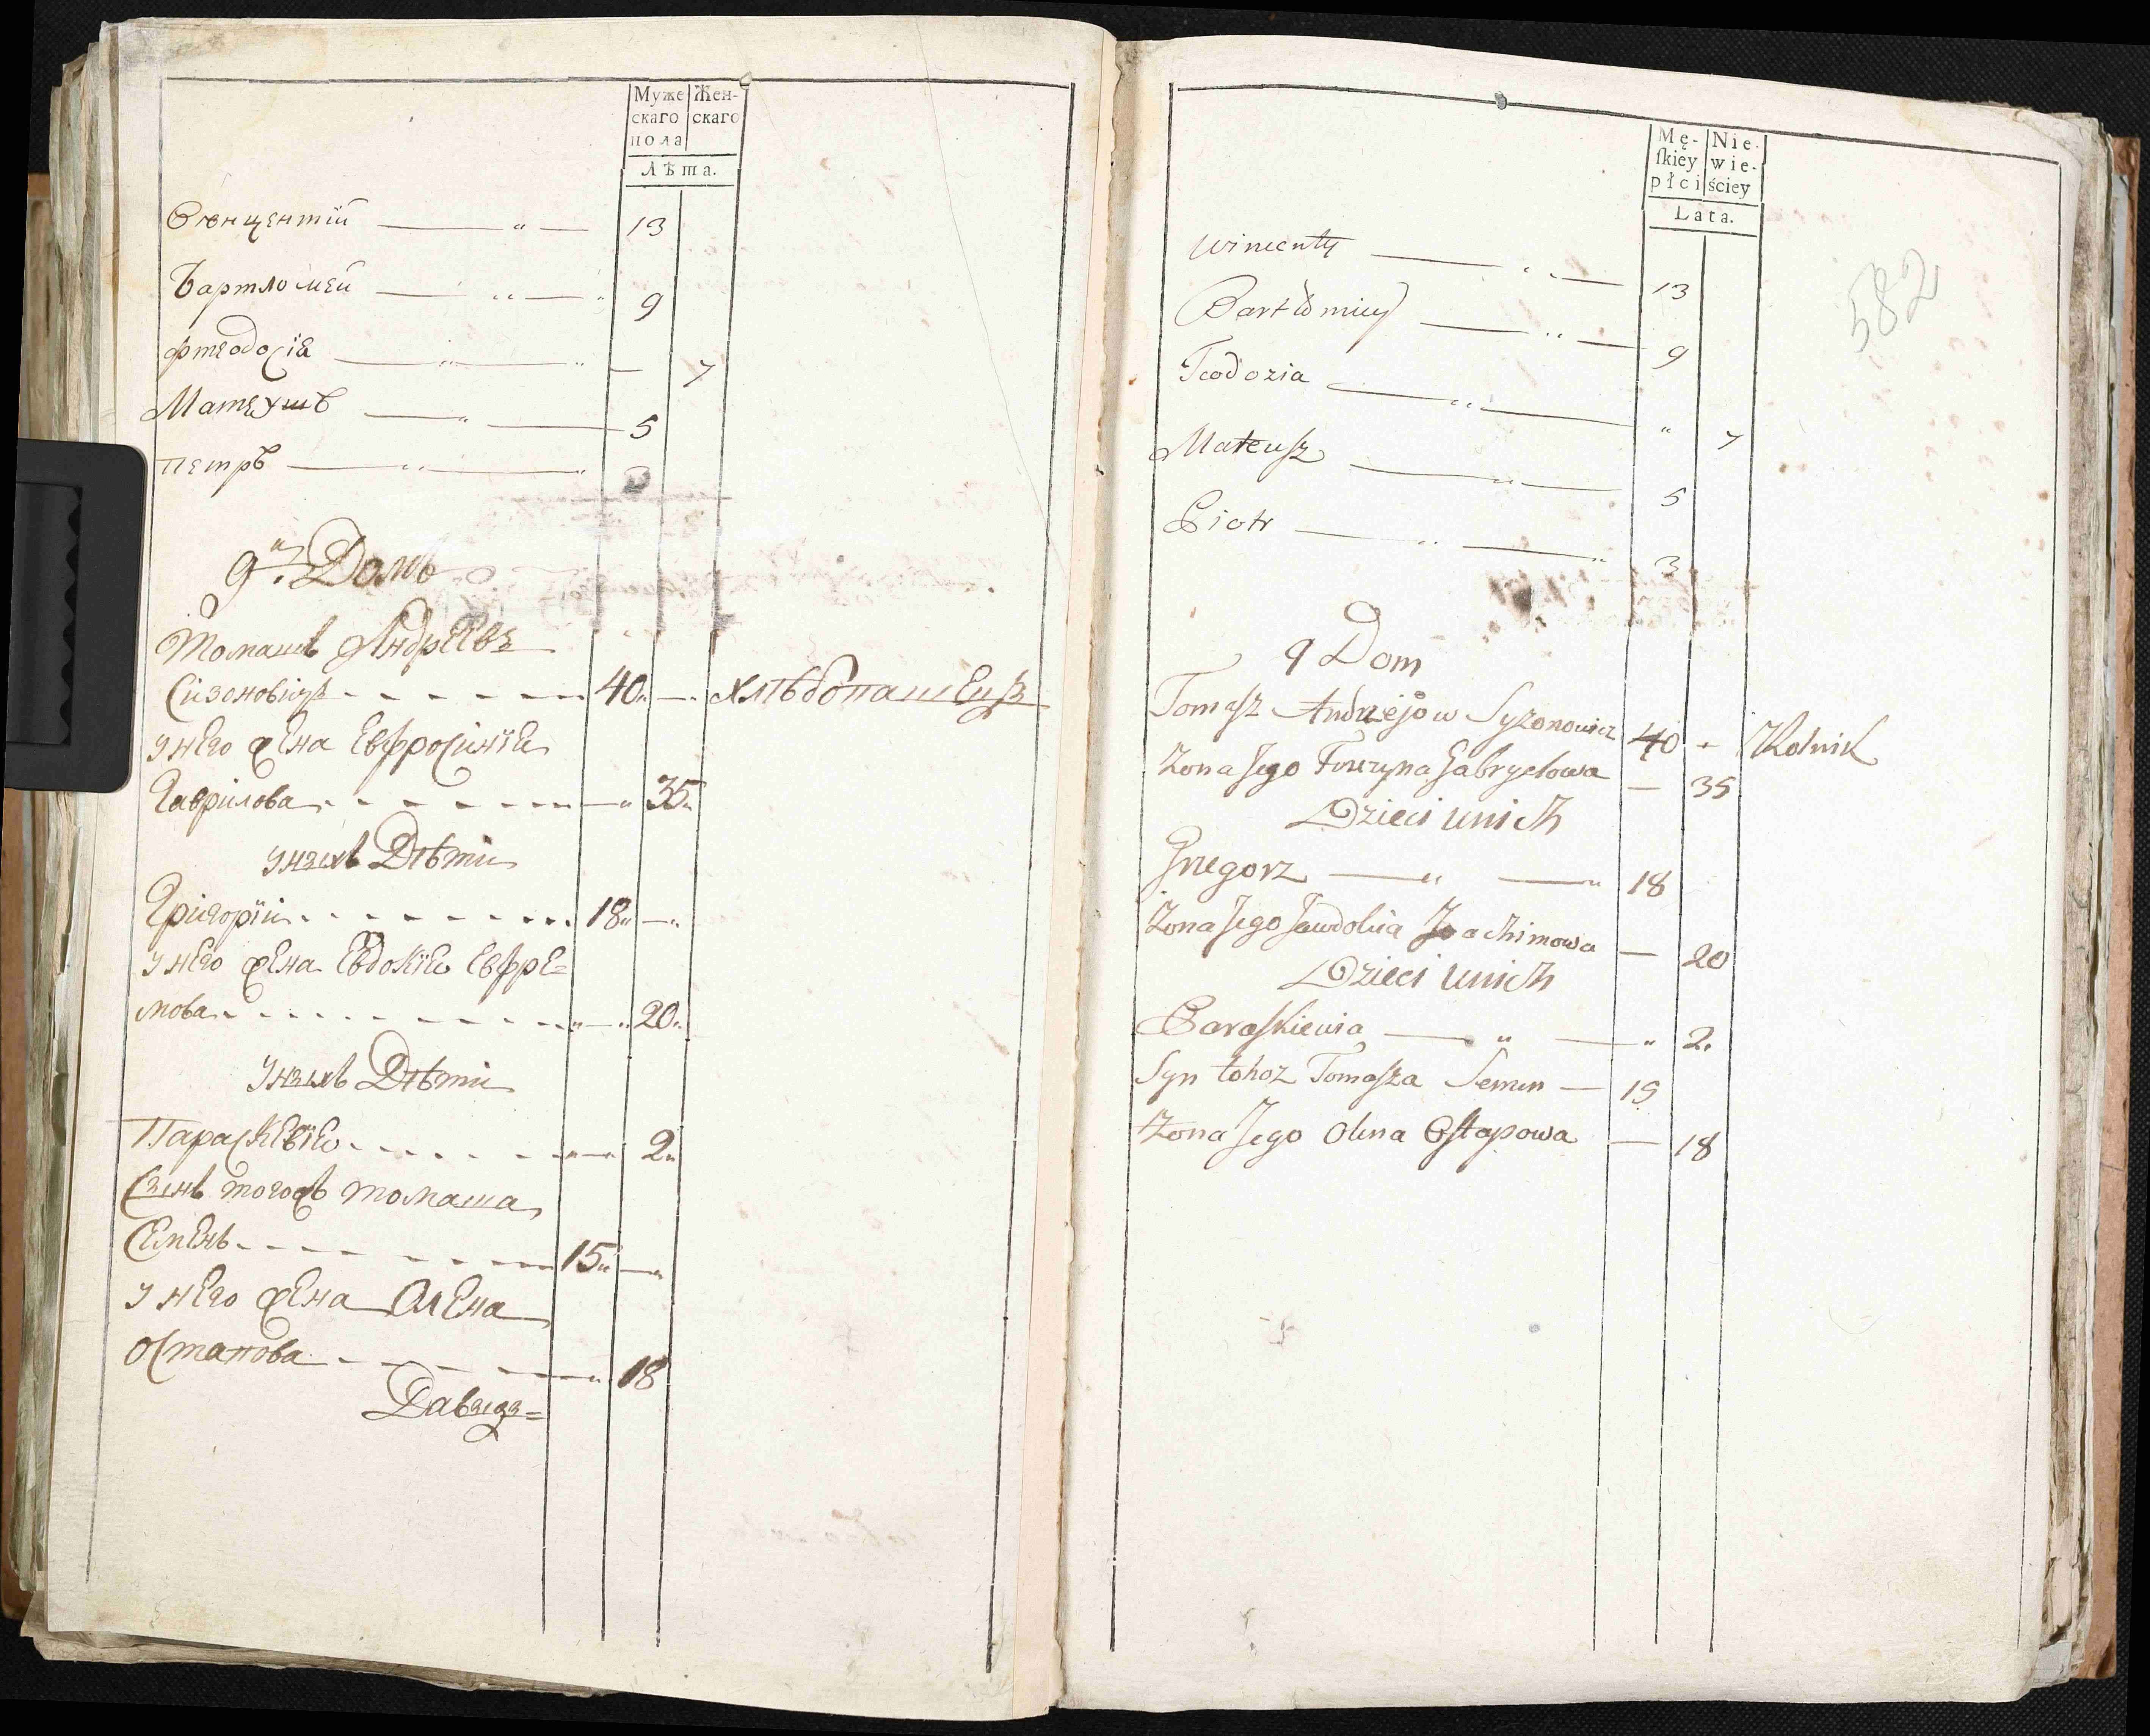 Муже скаго пола
Жен- скаго
Лѣта.
Вѣнцентїй — " — 13
Бартломей — " — " 9
Фтеодосіа — " — " — 7
Матеушъ — " — 5
петръ — " — "
9й Домъ
Томашъ Андрѣевъ
Сизоновичъ - - - - - 40 " — " хлѣбопашецъ
у него жена Евфросинїя
Гаврилова - - - - - — " 35 "
у ныхъ Дѣти
Григорїи - - - - - 18 " — "
у него жена Евдокїя Ефре=
мова - - - - - " — " 20 "
у ныхъ Дѣти
Параскевїя - - - - - " — " 2 "
Сынъ тогожъ томаша
Семенъ - - - - - 15 " — "
у него жена Олена
Остапова - - - — " 18
Давыдъ=
Mę- ſkiey płci
Nie- wie- ściey
Lata.
582
Wincenty — " — 13
Bartłomiey — " — 9
Teodozia — " — " 7
Mateuſz — " — 5
Piotr — " — " 3
9 Dom
Tomaſz Andrzejow Syzonowicz 40 " Rolnik
Zona Jego Fruzyna Gabryelowa — 35
Dzieci unich
Grzegorz — " — " 18
Zona Jego Jewdokia Joachimowa — 20
Dzieci unich
Paraſkiewia — " — " 2.
Syn tohoż Tomaſza Semen — 15
Zona Jego Olena Oſtapowa — 18